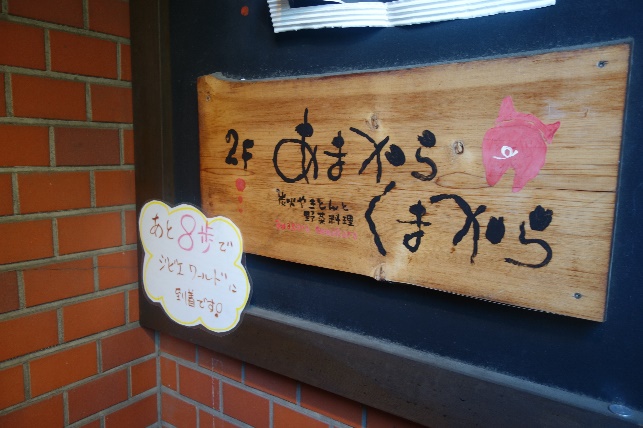 2F
あまから
くまから
炭火やきとんと
野菜料理
あと8歩で
ジビエワールドに
到着です!